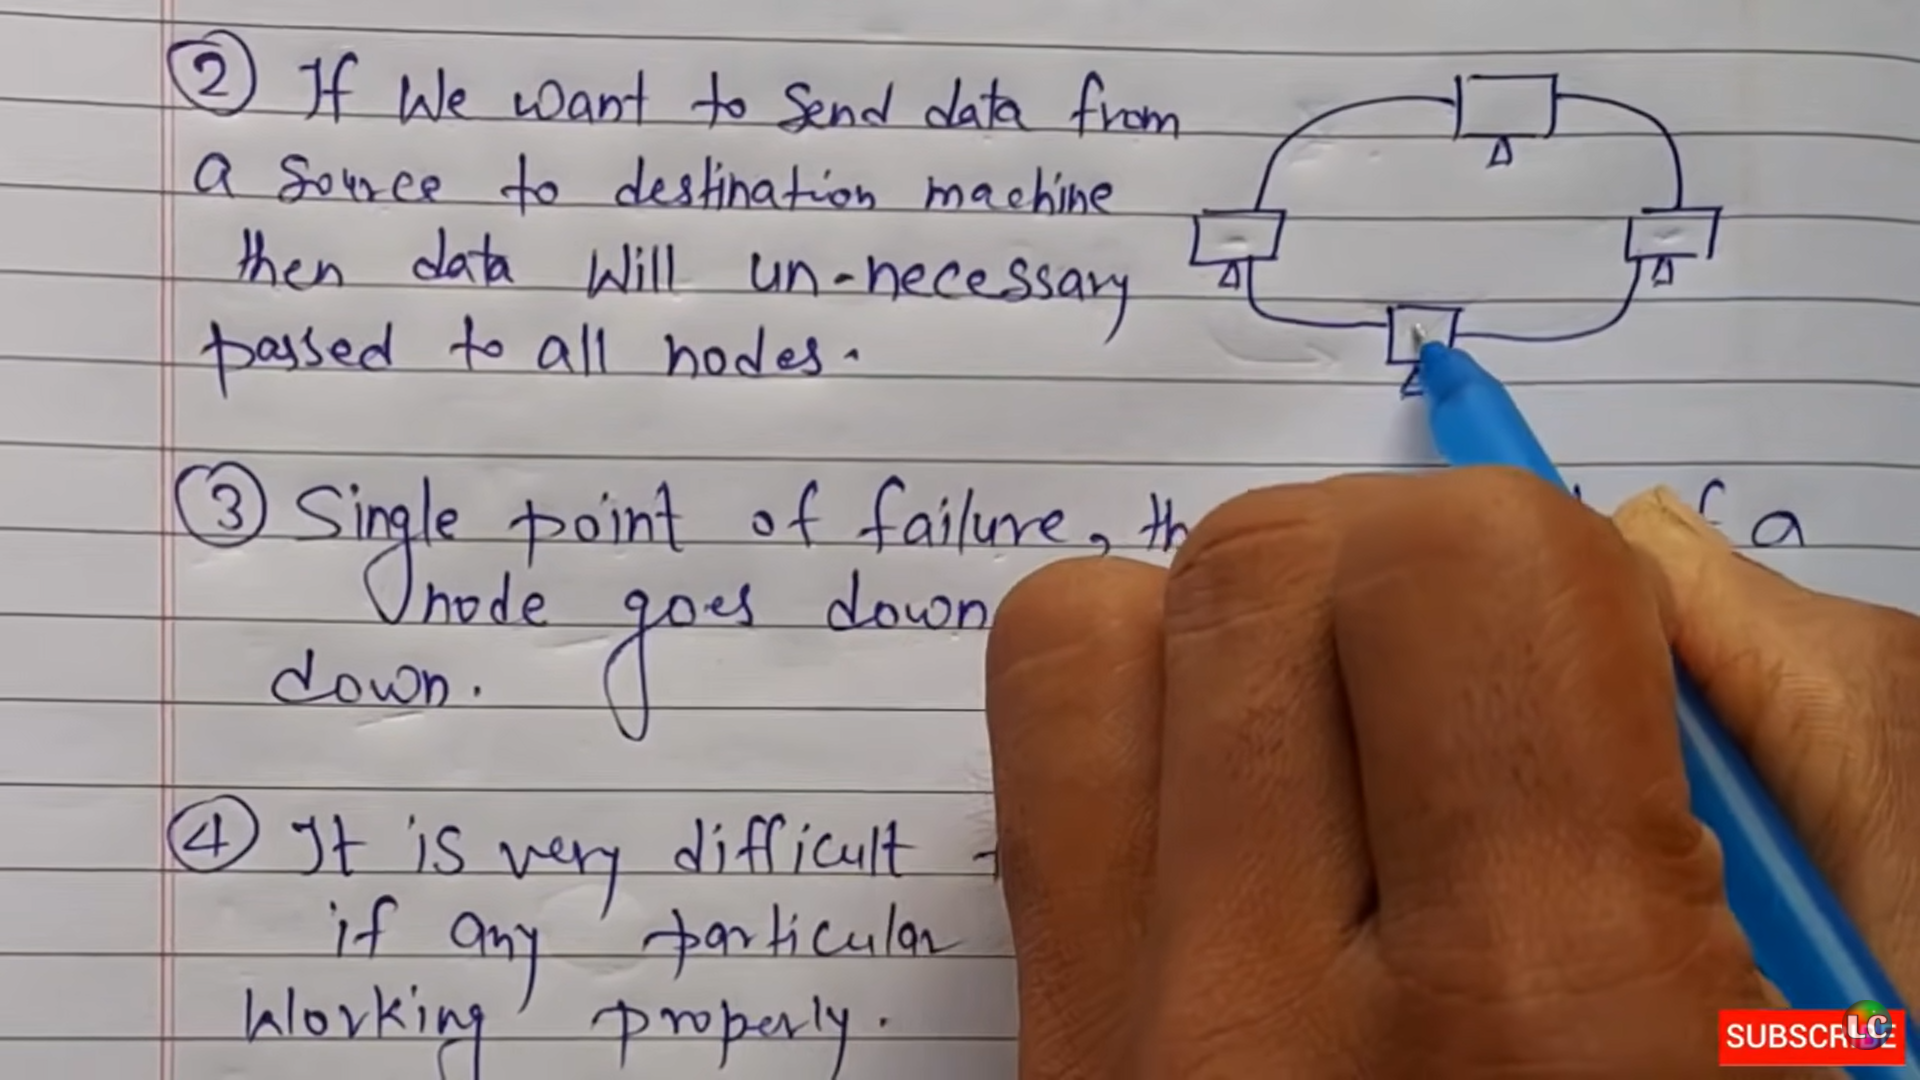 ② If We want to Send data from
a source to destination machine
then data Will un-necessary
passed to all nodes.
③ Single point of failure, a
node goes down
down.
④ It is very difficult
if any particular
Working properly.
SUBSCRIBE
LC